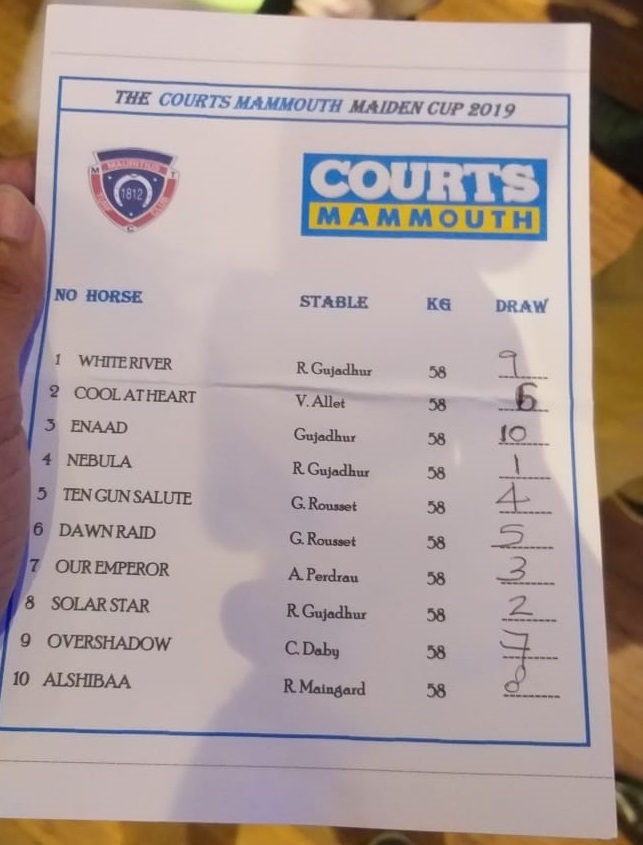 THE COURTS MAMMOUTH MAIDEN CUP 2019
MAURITIUS
M T
1812
TURF CLUB
C
COURTS
MAMMOUTH
NO HORSE STABLE KG DRAW
1 WHITE RIVER R. Gujadhur 58 9
2 COOL AT HEART V. Allet 58 6
3 ENAAD Gujadhur 58 10
4 NEBULA R. Gujadhur 58 1
5 TEN GUN SALUTE G. Rousset 58 4
6 DAWN RAID G. Rousset 58 5
7 OUR EMPEROR A. Perdrau 58 3
8 SOLAR STAR R. Gujadhur 58 2
9 OVERSHADOW C. Daby 58 7
10 ALSHIBAA R. Maingard 58 8